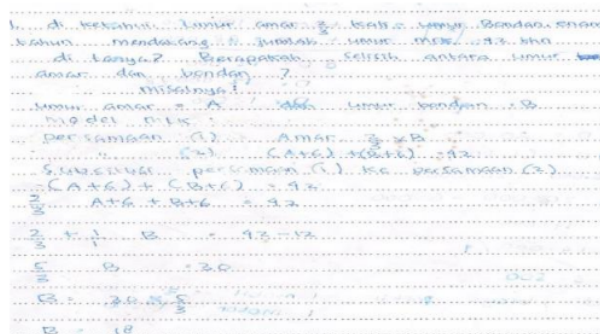 1. di ketahui umur amar 2/3 kali umur Bondan. enam
tahun mendatang jumlah umur mrk 42 thn
di tanya? Berapakah selisih antara umur
amar dan bondan ?
misalnya :
umur amar = A umur bondan = B
model mtk :
persamaan (1) Amar 2/3 x B
(2) (A+6) + (B+6) = 42
Subsitusi persamaan (1) ke persamaan (2)
(A+6) + (B+6) = 42
2/3 A+6 + B+6 = 42
2/3 + 1/1 B = 42-12
5/3 B = 30
B = 30 5/3
B = 18